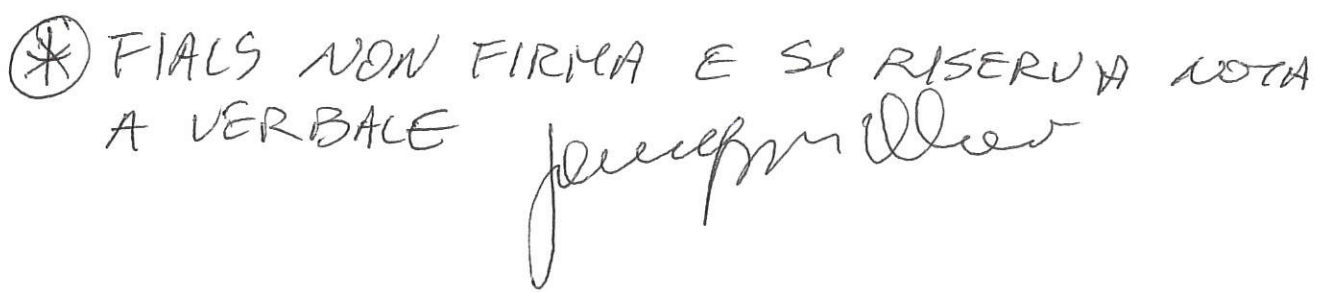 * FIALS NON FIRMA E SI RISERVA NOTA
A VERBALE